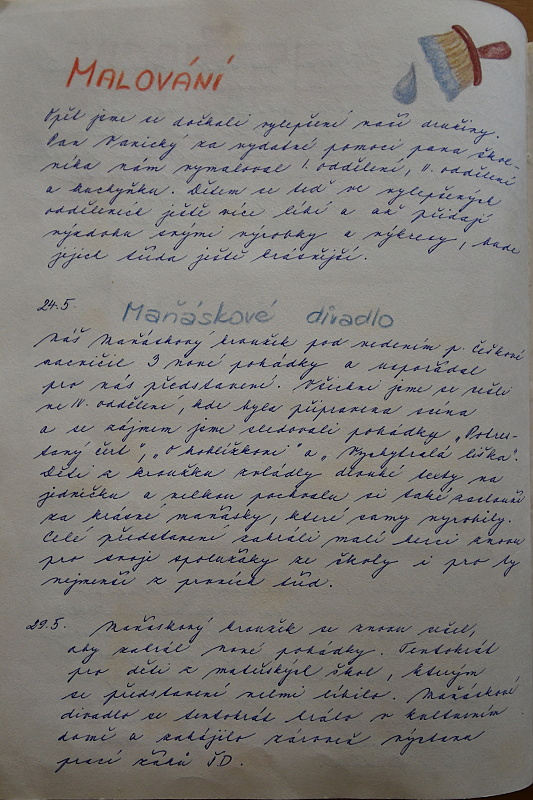 MALOVÁNÍ
Opět jsme se dočkali vylepšení naší družiny.
Pan Vanický za vydatné pomoci pana škol-
níka nám vymaloval I. oddělení, II. oddělení
a kuchyňku. Dětem se teď ve vylepšených
odděleních ještě více líbí a až přidají
výzdobu svými výrobky a výkresy, bude
jejich třída ještě krásnější.
24.5. Maňáskové divadlo
Náš Maňáskový kroužek pod vedením p. Češkové
nacvičil 3 nové pohádky a uspořádal
pro nás představení. Všichni jsme se sešli
ve IV. oddělení, kde byla připravena scéna
a se zájmem jsme sledovali pohádky „Potres-
taný čert", „O koblížkovi" a „Vychytralá liška".
Děti z kroužku zvládly dlouhé texty na
jedničku a velkou pochvalu si také zaslouží
za krásné maňásky, které samy vyrobily.
Celé představení zahráli malí herci znovu
pro svoje spolužáky ze školy i pro ty
nejmenší z prvních tříd.
29.5. Maňáskový kroužek se znovu sešel,
aby zahrál nové pohádky. Tentokrát
pro děti z mateřských škol, kterým
se představení velmi líbilo. Maňáskové
divadlo se tentokrát hrálo v kulturním
domě a zahájilo zároveň výstavu
prací žáků ŠD.